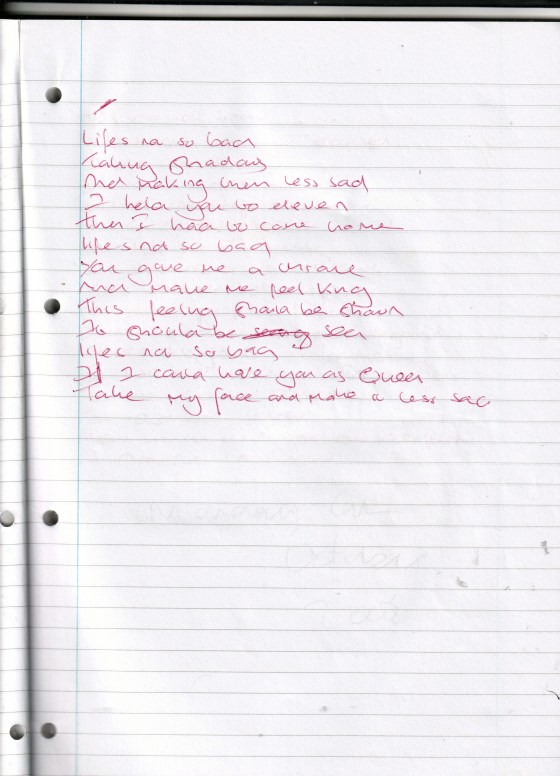 Lifes not so bad
Taking Shadows
And making them less sad
I held you to eleven
Then I had to come home
lifes not so bad
You gave me a throne
And make me feel King
This feeling should be shown
It should be seen
lifes not so bad
If I could have you as Queen
Take my face and make it less sad